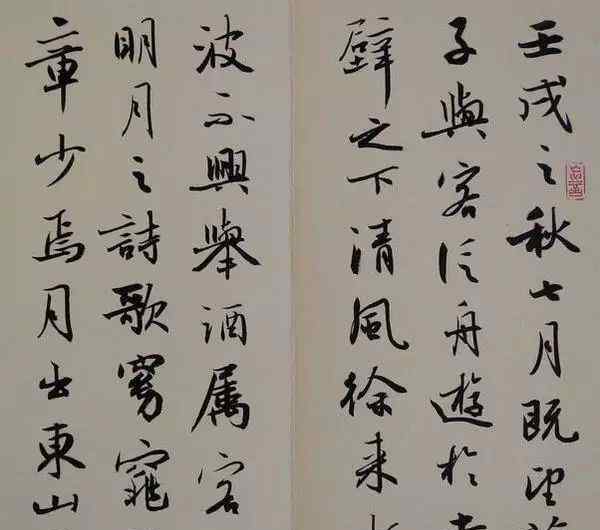 壬戌之秋七月既望
子與客泛舟遊於
壁之下清風徐來
波不興舉酒属客
明月之詩歌窈窕
章少焉月出東山